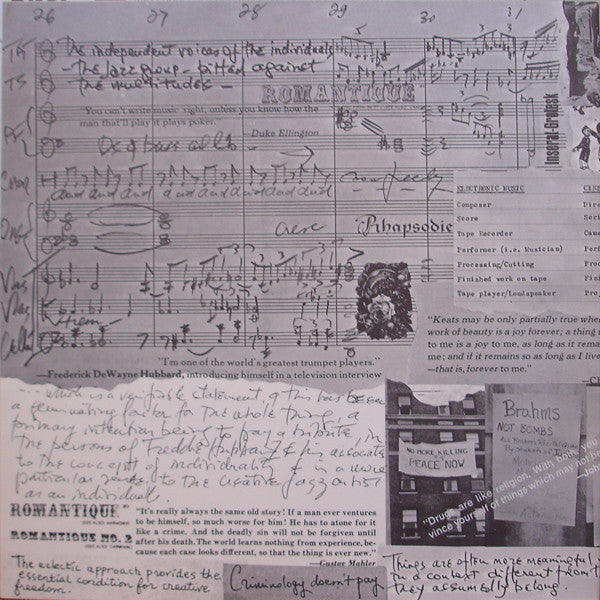 26 27 28 29 30 31
The independent voices of the individuals
- The Jazz group - pitted against
the multitudes -
ROMANTIQUE
"You can't write music right, unless you know how the
man that'll play it plays poker."
—Duke Ellington
Integral-Grotesk
and and and and and and and
Cresc
Rhapsodie
ELECTRONIC MUSIC
Composer
Score
Tape Recorder
Performer (i.e. Musician)
Processing/Cutting
Finished work on tape
Tape player/Loudspeaker
"Keats may be only partially true whe
work of beauty is a joy forever; a thing
to me is a joy to me, as long as it rema
me; and if it remains so as long as I live
—that is, forever to me."
"I'm one of the world's greatest trumpet players."
—Frederick DeWayne Hubbard, introducing himself in a television interview
... which is a verifiable statement, & this has been
a germinating factor for the whole thing, a
primary intention being to pay a tribute, in
the persons of Freddie Hubbard & his associates
to the concept of individuality & in a more
particular sense to the creative jazz artist
as an individual.
Brahms
NOT BOMBS
NO MORE KILLING
PEACE NOW
"Drugs are like religion. With both, you
vince yourself of things which may not be
ROMANTIQUE
ROMANTIQUE NO. 2
"It's really always the same old story! If a man ever ventures
to be himself, so much worse for him! He has to atone for it
like a crime. And the deadly sin will not be forgiven until
after his death. The world learns nothing from experience, be-
cause each case looks different, so that the thing is ever new."
—Gustav Mahler
The eclectic approach provides the
essential condition for creative
freedom.
Criminology doesn't pay
Things are often more meaningful
in a context different from
they assumedly belong.